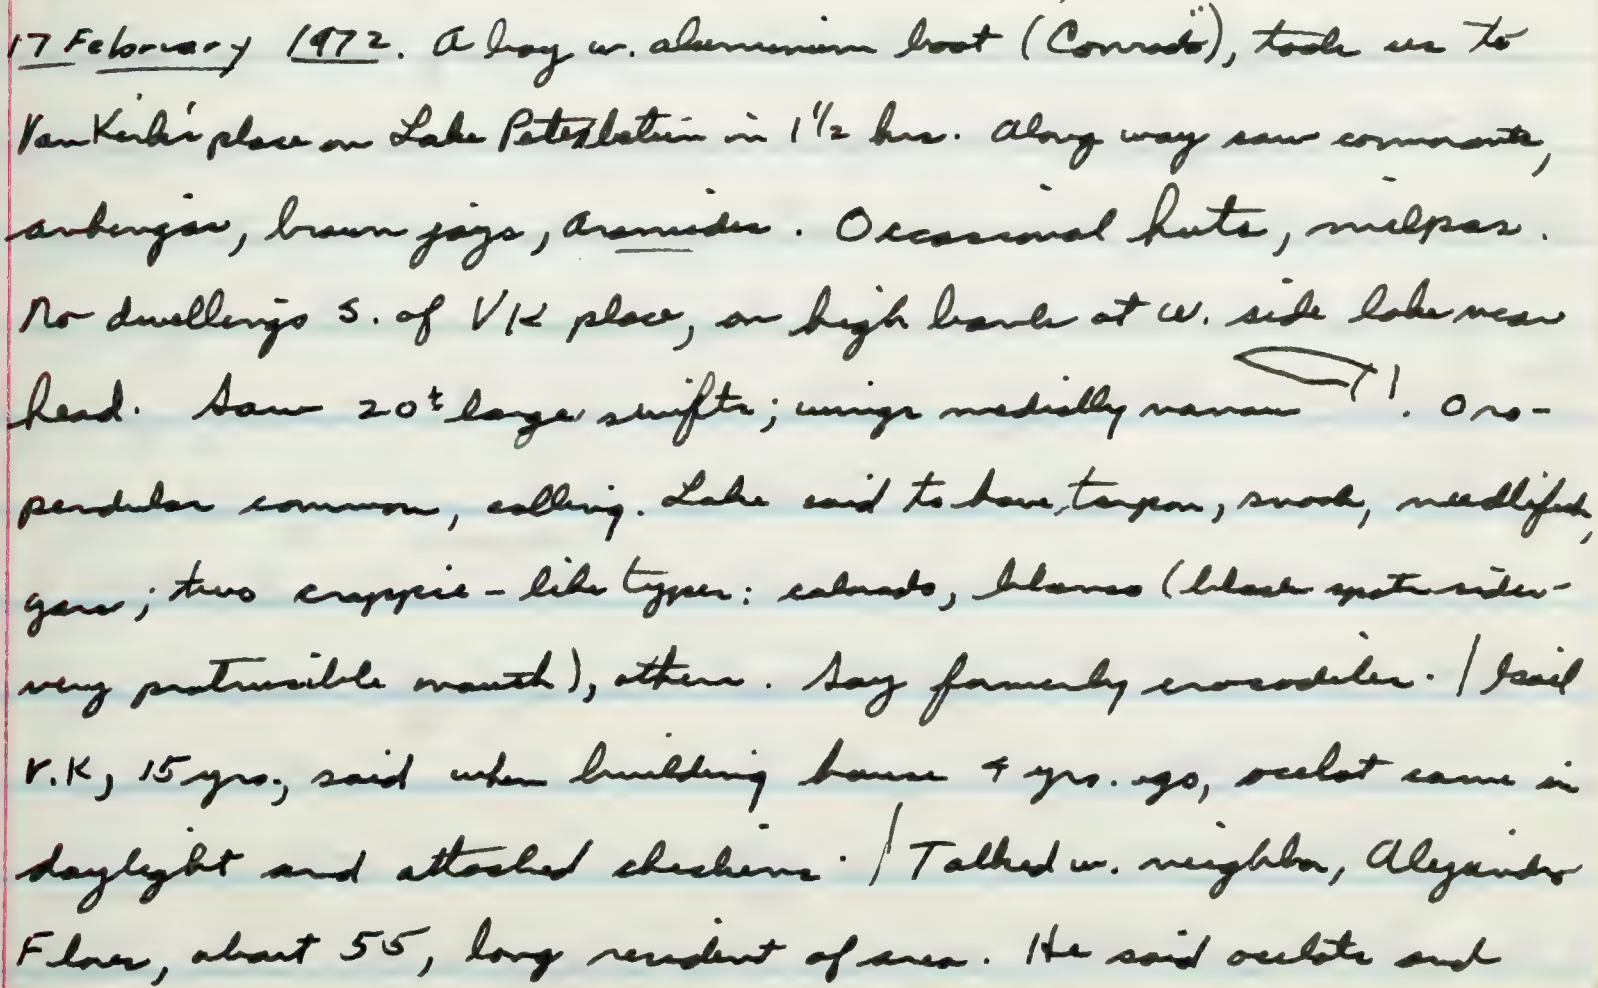 17 February 1972. A boy w. aluminum boat (Conrado), took us to
Van Kirk's place on Lake Petexbatún in 1 1/2 hrs. Along way saw cormorants,
anhingas, brown jays, Aramides. Occasional huts, milpas.
No dwellings S. of VK place, on high bank at w. side lake near
head. Saw 20± large swifts; wings medially narrow !. Oro-
pendulas common, calling. Lake said to have tarpon, snook, needlefish,
gars; two crappie-like types: colorado, blanco (black spot sides-
very protrusible mouth), others. Say formerly crocodiles. /
V.K, 15 yrs., said when building house 4 yrs. ago, ocelot came in
daylight and attacked chickens. / Talked w. neighbor, Alejandro
Flores, about 55, long resident of area. He said ocelots and